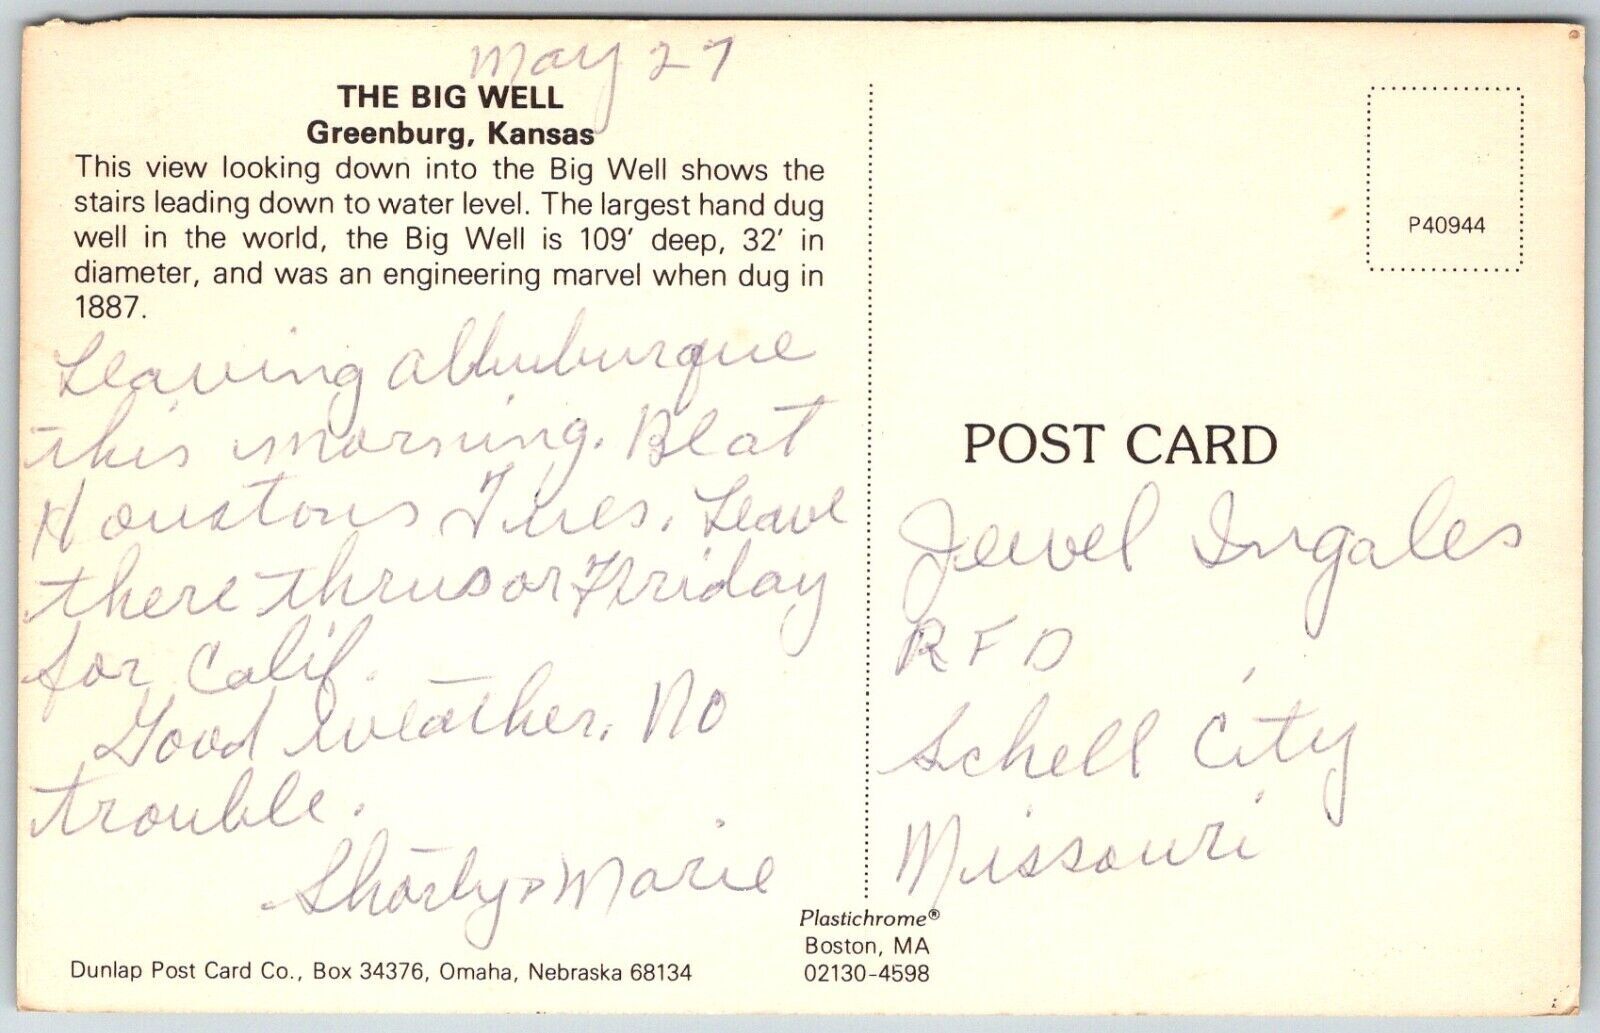 May 27
THE BIG WELL
Greenburg, Kansas
This view looking down into the Big Well shows the
stairs leading down to water level. The largest hand dug
well in the world, the Big Well is 109' deep, 32' in
diameter, and was an engineering marvel when dug in
1887.
Leaving
this morning. Be at
Houstons Tues. Leave
there thrus or Friday
for Calif.
Good weather. No
trouble.
Shorty & Marie
Dunlap Post Card Co., Box 34376, Omaha, Nebraska 68134
Plastichrome®
Boston, MA
02130-4598
P40944
POST CARD
Jewel Ingales
RFD
Schell City
Missouri